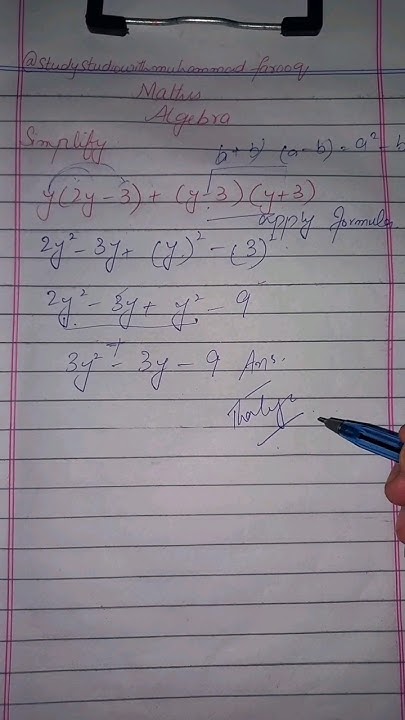 @studystudiowithmuhammad farooq
Maths
Algebra
Simplify
(a+b) (a-b) = a² - b
y(2y-3) + (y-3)(y+3)
apply formula
2y² - 3y + (y)² - (3)²
2y² - 3y + y² - 9
3y² - 3y - 9 Ans.